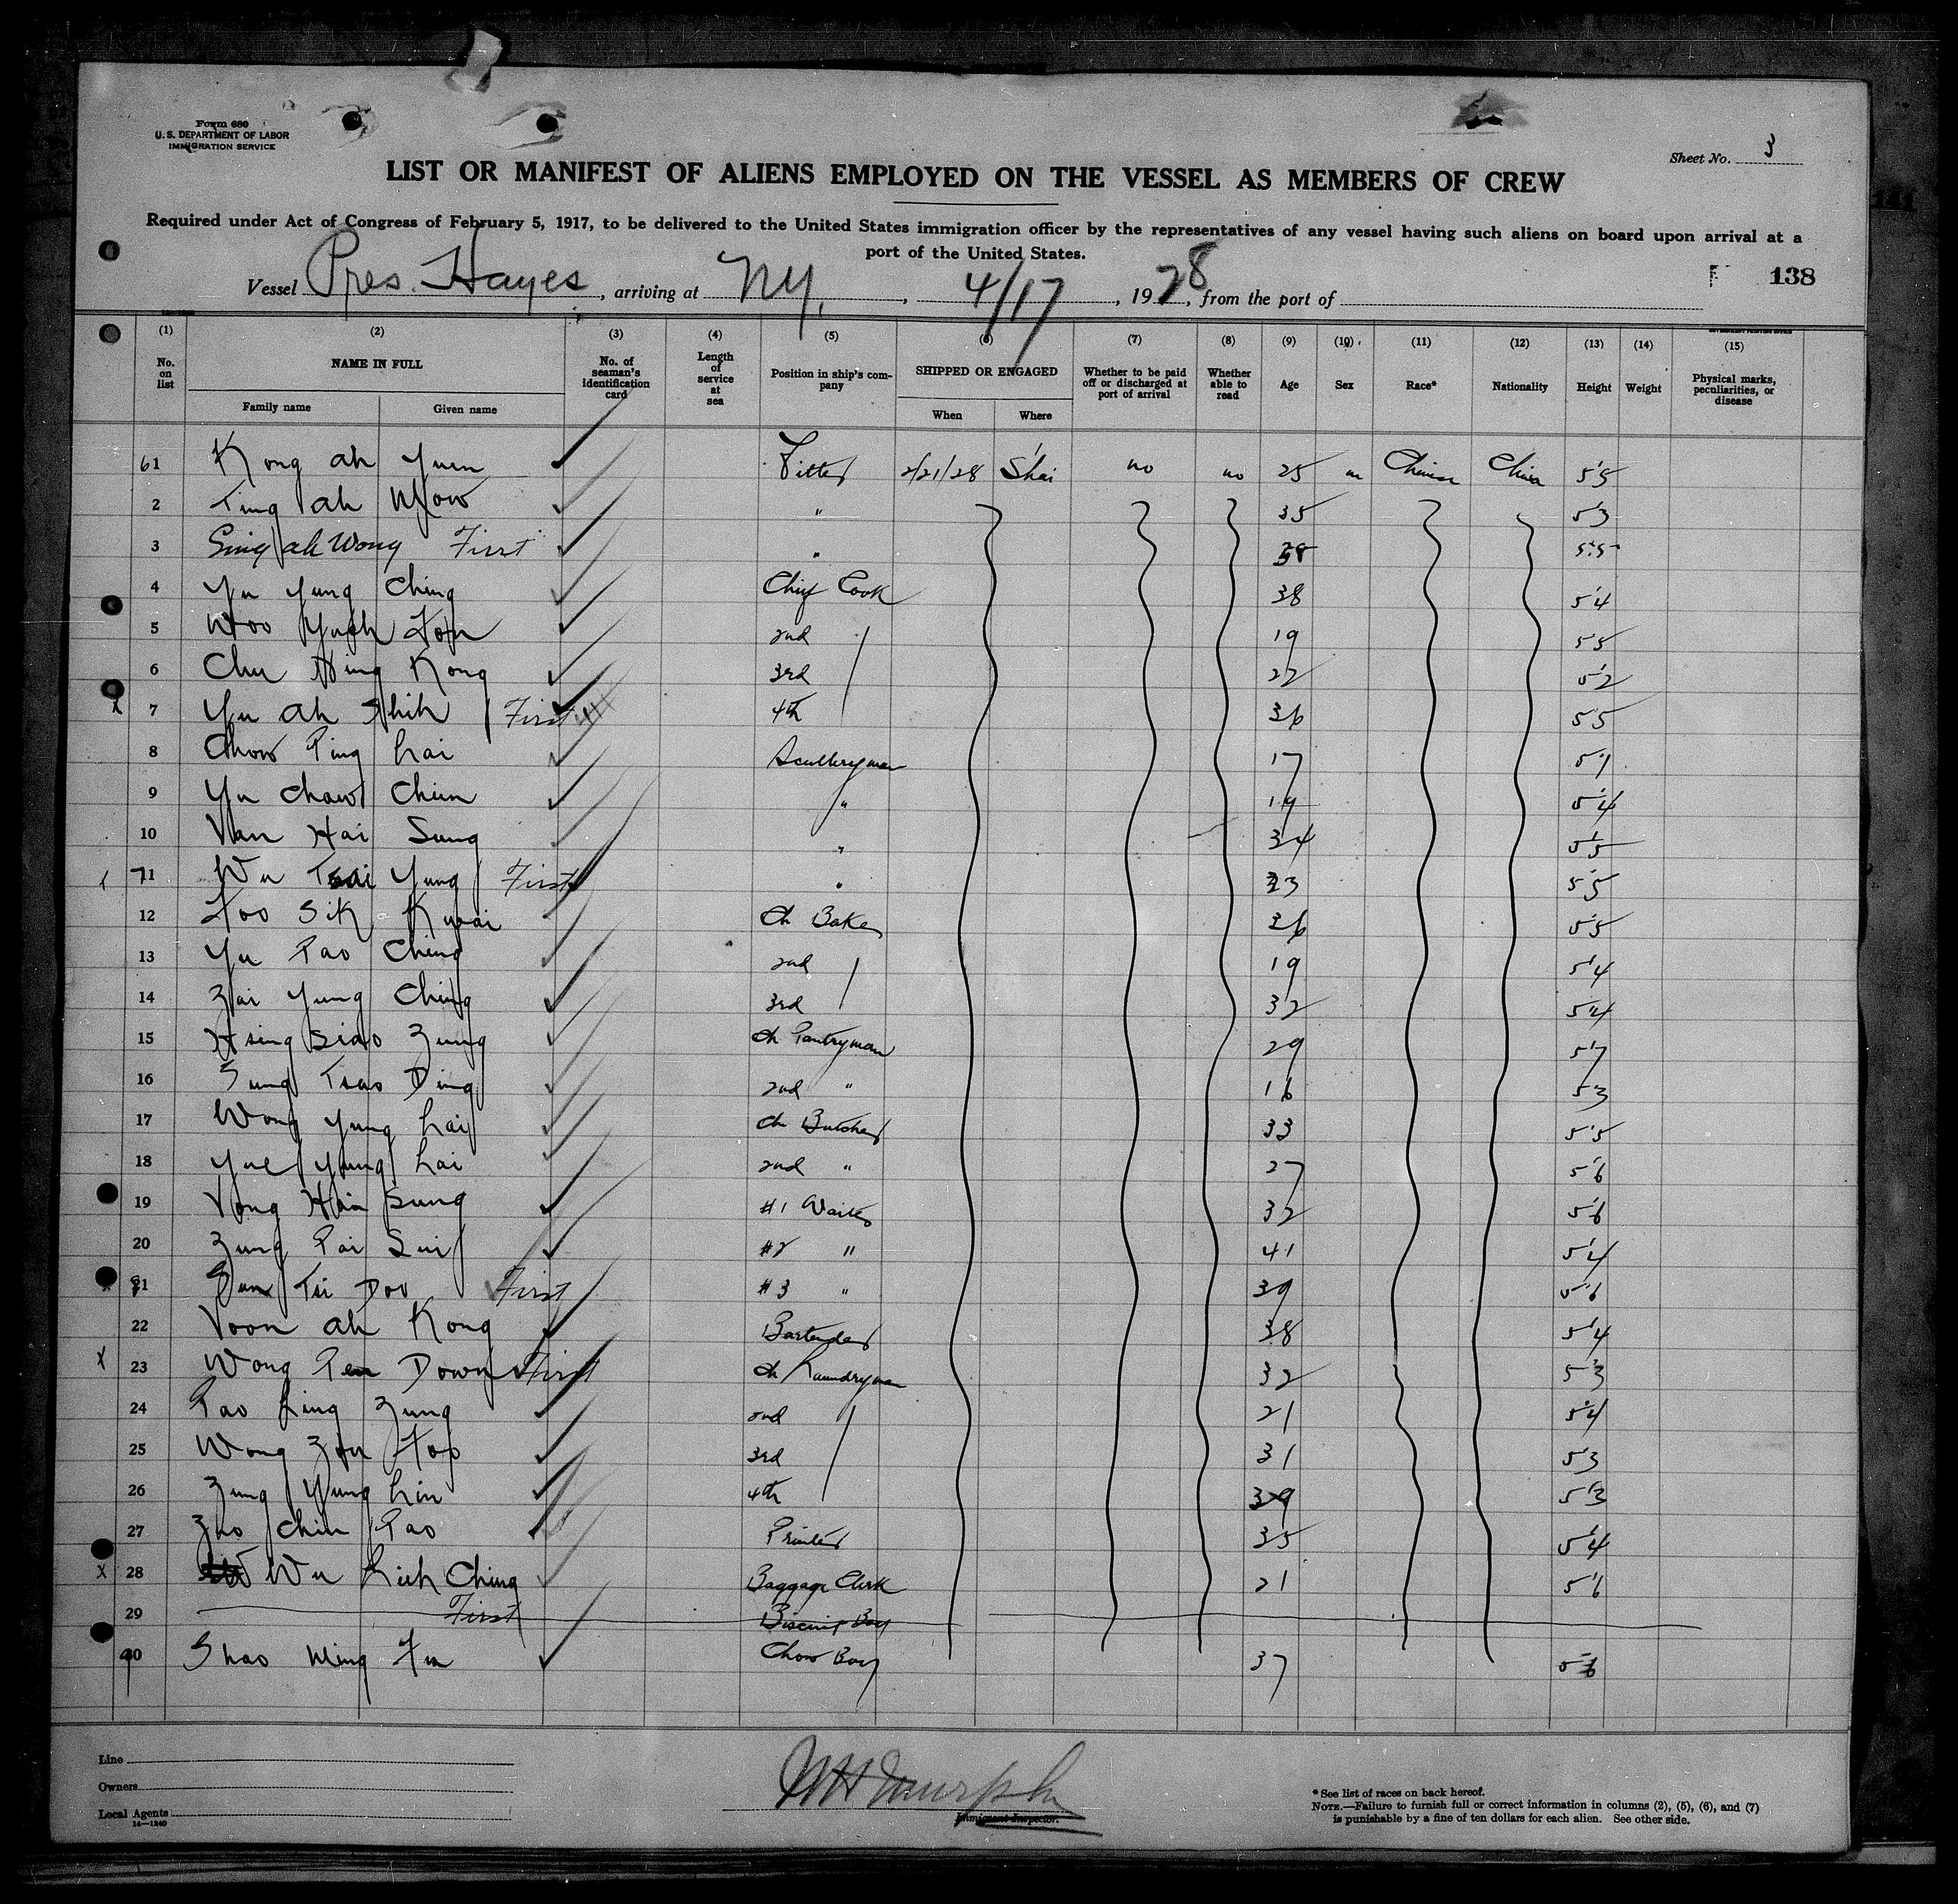 Form 680
U.S. DEPARTMENT OF LABOR
IMMIGRATION SERVICE
Sheet No. 3
LIST OR MANIFEST OF ALIENS EMPLOYED ON THE VESSEL AS MEMBERS OF CREW
Required under Act of Congress of February 5, 1917, to be delivered to the United States immigration officer by the representatives of any vessel having such aliens on board upon arrival at a
port of the United States.
138
Vessel Pres. Hayes, arriving at NY, 4/17, 1928, from the port of
(1) (2) (3) (4) (5) (6) (7) (8) (9) (10) (11) (12) (13) (14) (15)
No. on list NAME IN FULL Family name Given name No. of seaman's identification card Length of service at sea Position in ship's company SHIPPED OR ENGAGED When Where Whether to be paid off or discharged at port of arrival Whether able to read Age Sex Race* Nationality Height Weight Physical marks, peculiarities, or disease
61 Kong ah Yuen Fitter 2/21/28 S'hai no no 25 m Chinese China 5'5
2 Ting ah Mow " 35 5'3
3 Sing ah Wong First " 38 5'5
4 Yu Yung Ching Chief Cook 38 5'4
5 Woo Yueh 2nd 19 5'5
6 Chu Hing Kong 3rd 22 5'2
7 Yu ah Shih First 4th 36 5'5
8 Chow Ping Lai Sculleryman 17 5'1
9 Yu Chaw Chun " 19 5'4
10 Van Hai Sung " 34 5'5
71 Wu Tsai Yung First " 23 5'5
12 Foo Sik Kwai Ch Baker 26 5'5
13 Yu Pao Ching 2nd 19 5'4
14 Zai Yung Ching 3rd 32 5'4
15 Hsing Siao Zung Ch Pantryman 29 5'7
16 Sung Tsao Ding 2nd " 16 5'3
17 Wong Yung Lai Ch Butcher 33 5'5
18 Yue Yung Lai 2nd " 27 5'6
19 Vong Hai Sung #1 Waiter 32 5'6
20 Zung Pai Sui #2 " 41 5'4
81 Tsi Doo First #3 " 39 5'6
22 Voon ah Kong Bartender 38 5'4
23 Wong Pen Down First Ch Laundryman 32 5'3
24 Pao Ling Zung 2nd 21 5'4
25 Wong Zou Foo 3rd 31 5'3
26 Zung Yung Lin 4th 39 5'3
27 Zao Chin Pao Printer 35 5'4
28 Wu Lieh Ching Baggage Clerk 21 5'6
29 First Biscuit Boy
90 Shao Ming Fu Chow Boy 37 5'6
Line
Owners
Local Agents
14—1240
Immigrant Inspector.
* See list of races on back hereof.
NOTE.—Failure to furnish full or correct information in columns (2), (5), (6), and (7)
is punishable by a fine of ten dollars for each alien. See other side.